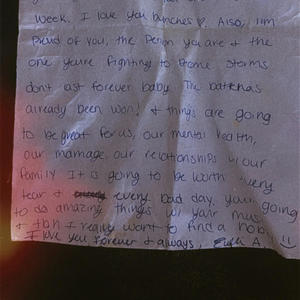 week. I love you bunches &. Also, I'm
proud of you, the person you are & the
one youre fighting to become storms
dont last forever baby. The battle has
already been won! & things are going
to be great for us, our mental health,
our marriage our relationships w/ our
family It is going to be worth every
tear & every bad day. your going
to do amazing things w/ your music
& tbh I really want to find a hobby
I love you forever & always, A !!